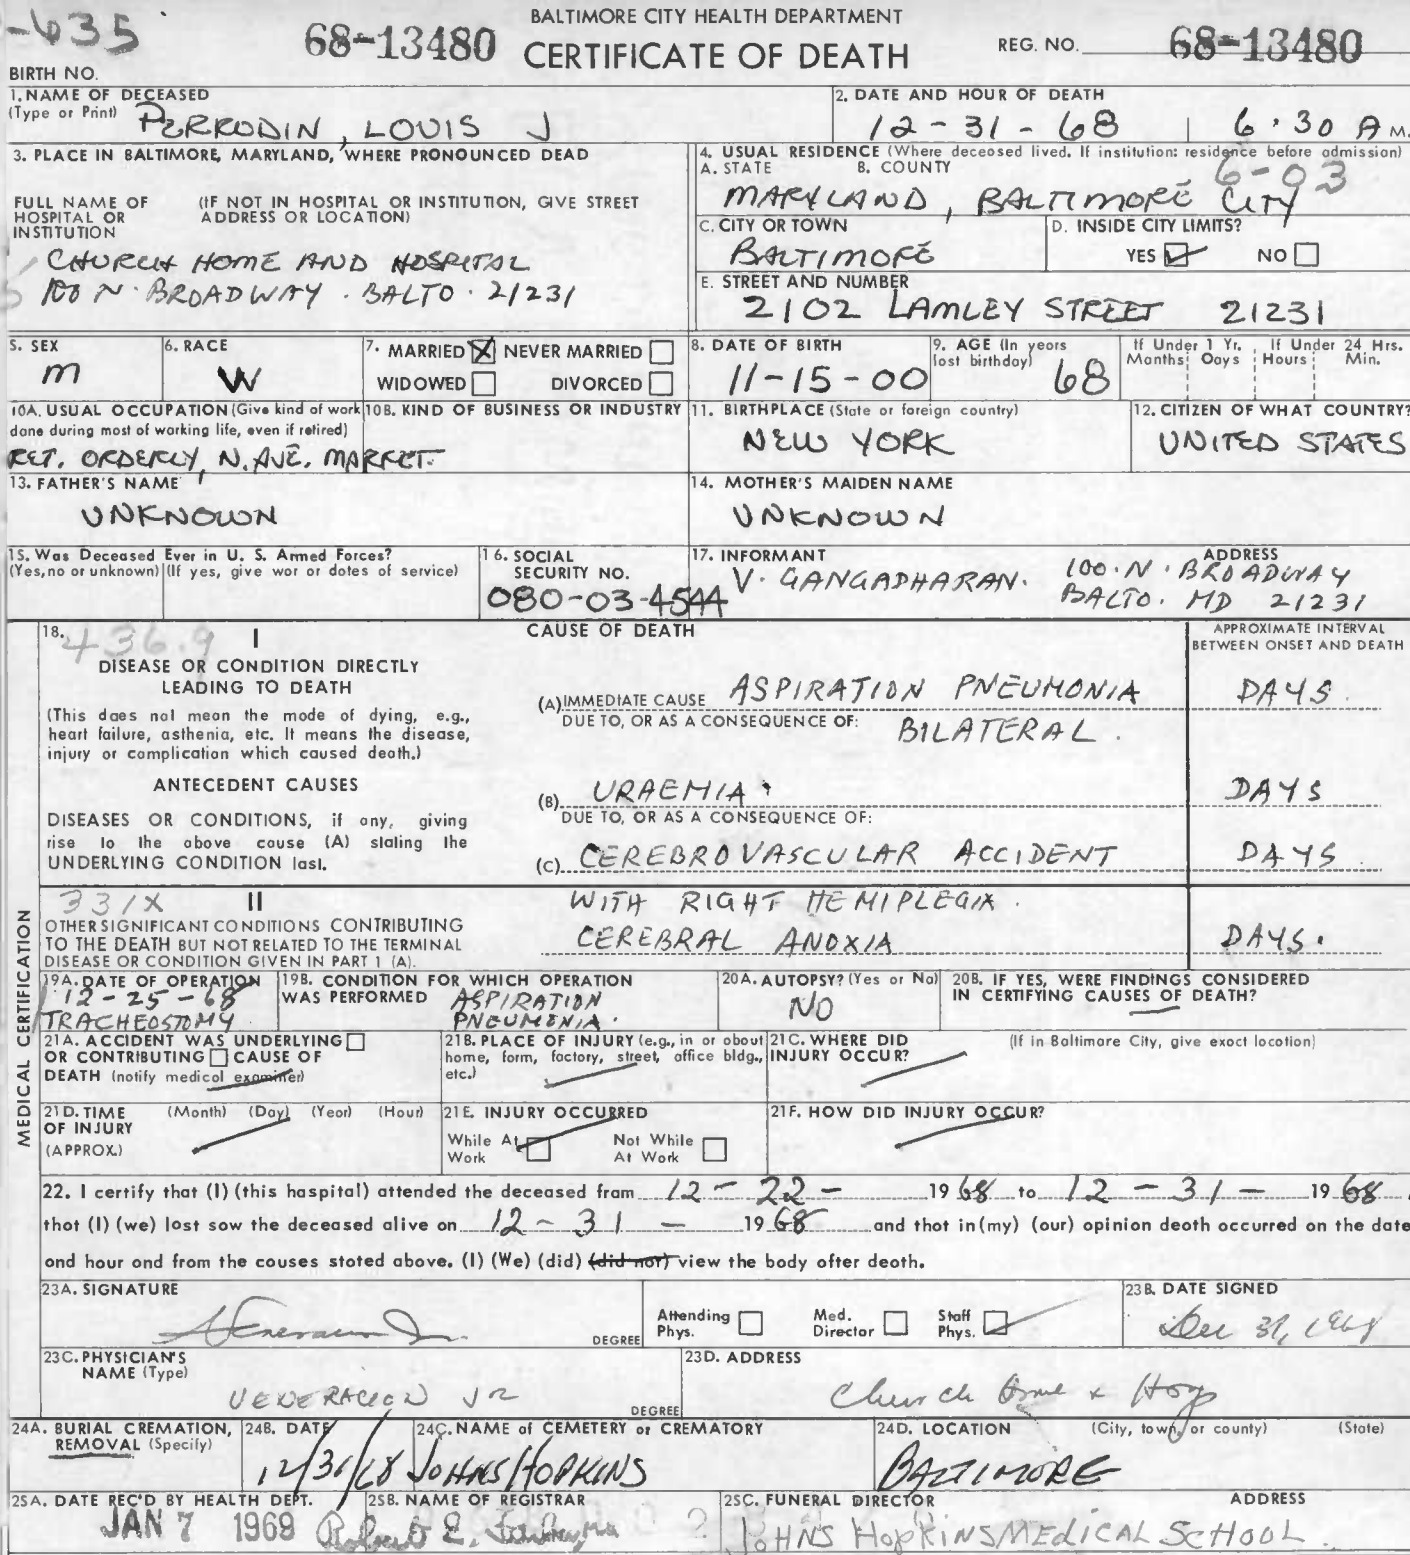 -635
68-13480
BALTIMORE CITY HEALTH DEPARTMENT
CERTIFICATE OF DEATH
REG. NO. 68-13480
BIRTH NO.
1. NAME OF DECEASED
(Type or Print) PERRODIN, LOUIS J
2. DATE AND HOUR OF DEATH
12-31-68 6:30 A M.
3. PLACE IN BALTIMORE, MARYLAND, WHERE PRONOUNCED DEAD
FULL NAME OF HOSPITAL OR INSTITUTION
(IF NOT IN HOSPITAL OR INSTITUTION, GIVE STREET ADDRESS OR LOCATION)
CHURCH HOME AND HOSPITAL
100 N. BROADWAY. BALTO. 21231
4. USUAL RESIDENCE (Where deceased lived. If institution: residence before admission)
A. STATE B. COUNTY
6-03
MARYLAND, BALTIMORE CITY
C. CITY OR TOWN
BALTIMORE
D. INSIDE CITY LIMITS?
YES NO
E. STREET AND NUMBER
2102 LAMLEY STREET 21231
5. SEX
M
6. RACE
W
7. MARRIED NEVER MARRIED
WIDOWED DIVORCED
8. DATE OF BIRTH
11-15-00
9. AGE (In years last birthday)
68
If Under 1 Yr. Months Days
If Under 24 Hrs. Hours Min.
10A. USUAL OCCUPATION (Give kind of work done during most of working life, even if retired)
10B. KIND OF BUSINESS OR INDUSTRY
RET. ORDERLY, N. AVE. MARKET.
11. BIRTHPLACE (State or foreign country)
NEW YORK
12. CITIZEN OF WHAT COUNTRY?
UNITED STATES
13. FATHER'S NAME
UNKNOWN
14. MOTHER'S MAIDEN NAME
UNKNOWN
15. Was Deceased Ever in U. S. Armed Forces?
(Yes, no or unknown) (If yes, give war or dates of service)
16. SOCIAL SECURITY NO.
080-03-4544
17. INFORMANT
V. GANGADHARAN.
ADDRESS
100. N. BROADWAY
BALTO. MD 21231
18. 436.9
I
DISEASE OR CONDITION DIRECTLY
LEADING TO DEATH
(This does not mean the mode of dying, e.g.,
heart failure, asthenia, etc. It means the disease,
injury or complication which caused death.)
ANTECEDENT CAUSES
DISEASES OR CONDITIONS, if any, giving
rise to the above cause (A) stating the
UNDERLYING CONDITION last.
CAUSE OF DEATH
APPROXIMATE INTERVAL
BETWEEN ONSET AND DEATH
(A) IMMEDIATE CAUSE ASPIRATION PNEUMONIA DAYS.
DUE TO, OR AS A CONSEQUENCE OF: BILATERAL.
(B) URAEMIA. DAYS
DUE TO, OR AS A CONSEQUENCE OF:
(C) CEREBROVASCULAR ACCIDENT DAYS.
331X
II
OTHER SIGNIFICANT CONDITIONS CONTRIBUTING
TO THE DEATH BUT NOT RELATED TO THE TERMINAL
DISEASE OR CONDITION GIVEN IN PART 1 (A).
WITH RIGHT HEMIPLEGIA.
CEREBRAL ANOXIA DAYS.
MEDICAL CERTIFICATION
19A. DATE OF OPERATION
12-25-68
TRACHEOSTOMY
19B. CONDITION FOR WHICH OPERATION
WAS PERFORMED ASPIRATION
PNEUMONIA.
20A. AUTOPSY? (Yes or No)
NO
20B. IF YES, WERE FINDINGS CONSIDERED
IN CERTIFYING CAUSES OF DEATH?
21A. ACCIDENT WAS UNDERLYING
OR CONTRIBUTING CAUSE OF
DEATH (notify medical examiner)
21B. PLACE OF INJURY (e.g., in or about
home, farm, factory, street, office bldg.,
etc.)
21C. WHERE DID
INJURY OCCUR?
(If in Baltimore City, give exact location)
21D. TIME OF INJURY (APPROX.)
(Month) (Day) (Year) (Hour)
21E. INJURY OCCURRED
While At Work
Not While At Work
21F. HOW DID INJURY OCCUR?
22. I certify that (I) (this hospital) attended the deceased from 12-22- 1968 to 12-31- 1968
that (I) (we) last saw the deceased alive on 12-31- 1968 and that in (my) (our) opinion death occurred on the date
and hour and from the causes stated above. (I) (We) (did) (did not) view the body after death.
23A. SIGNATURE
DEGREE
Attending Phys.
Med. Director
Staff Phys.
23B. DATE SIGNED
Dec 31, 1968
23C. PHYSICIAN'S
NAME (Type)
VENERACION JR
DEGREE
23D. ADDRESS
Church Home & Hosp
24A. BURIAL CREMATION,
REMOVAL (Specify)
24B. DATE
12/31/68
24C. NAME of CEMETERY or CREMATORY
JOHNS HOPKINS
24D. LOCATION (City, town, or county) (State)
BALTIMORE
25A. DATE REC'D BY HEALTH DEPT.
JAN 7 1969
25B. NAME OF REGISTRAR
Robert E.
25C. FUNERAL DIRECTOR ADDRESS
JOHNS HOPKINS MEDICAL SCHOOL.